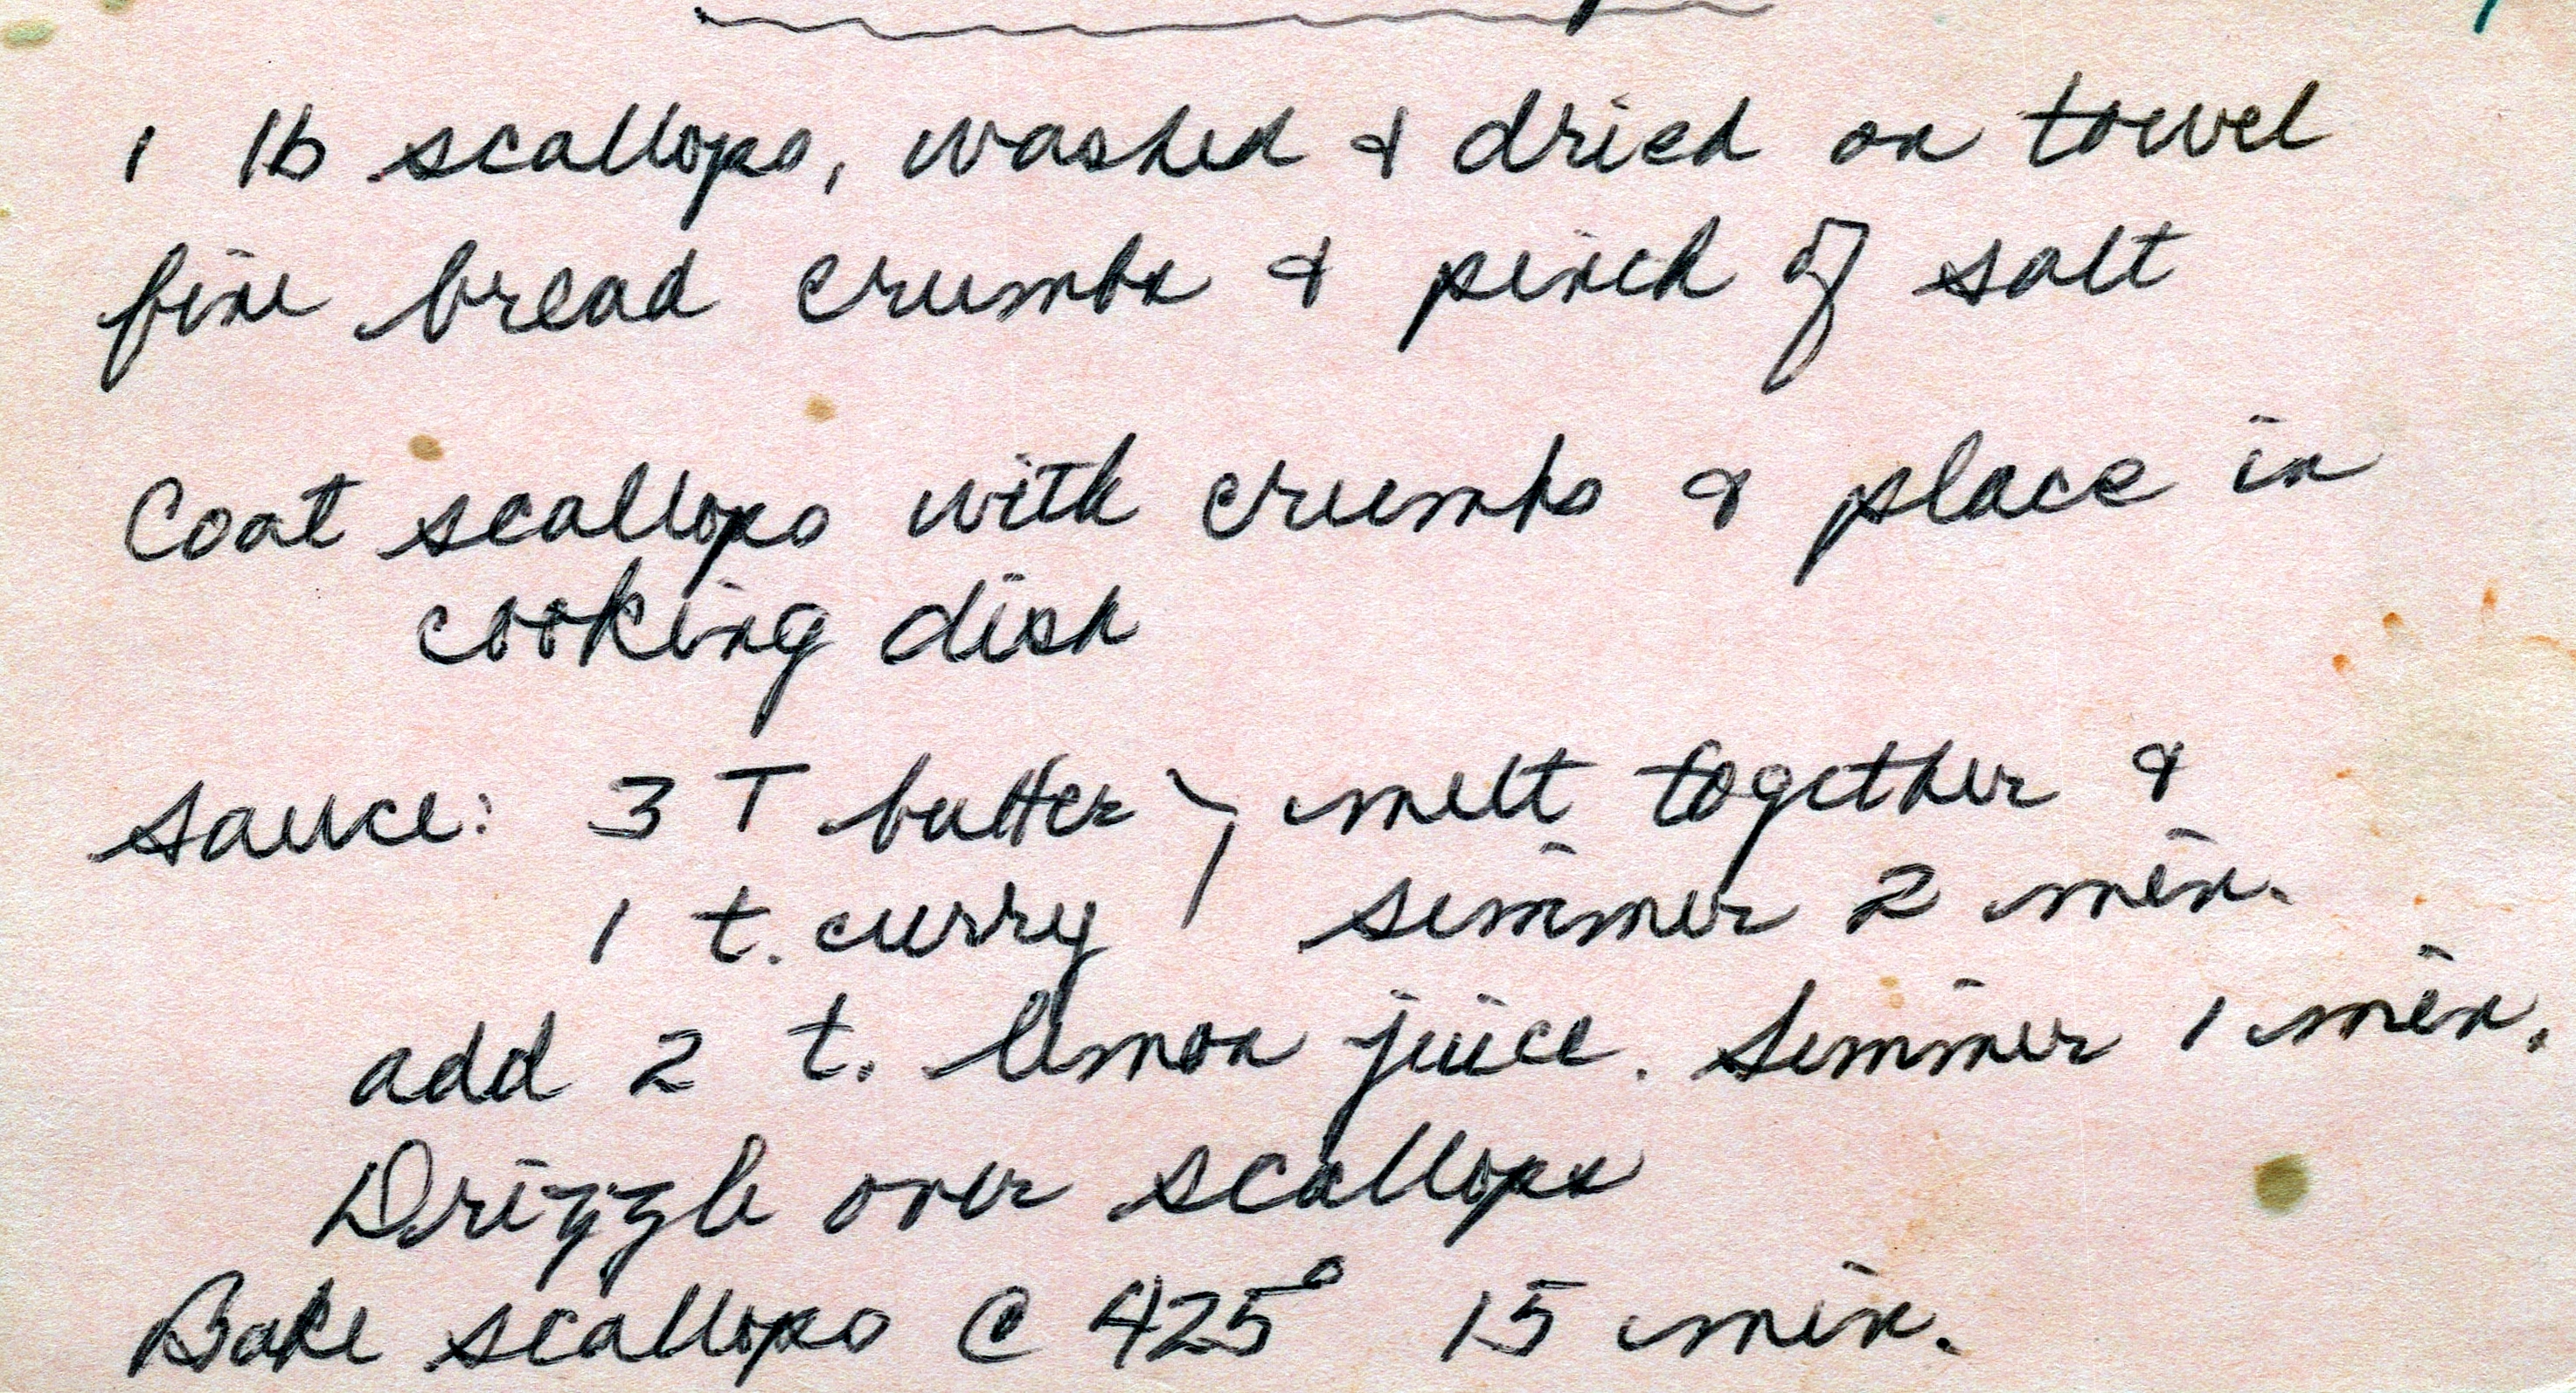 1 lb scallops, washed & dried on towel
fine bread crumbs & pinch of salt
Coat scallops with crumbs & place in
cooking dish
sauce: 3 T butter } melt together &
1 t. curry simmer 2 min.
add 2 t. lemon juice. Simmer 1 min.
Drizzle over scallops
Bake scallops @ 425° 15 min.